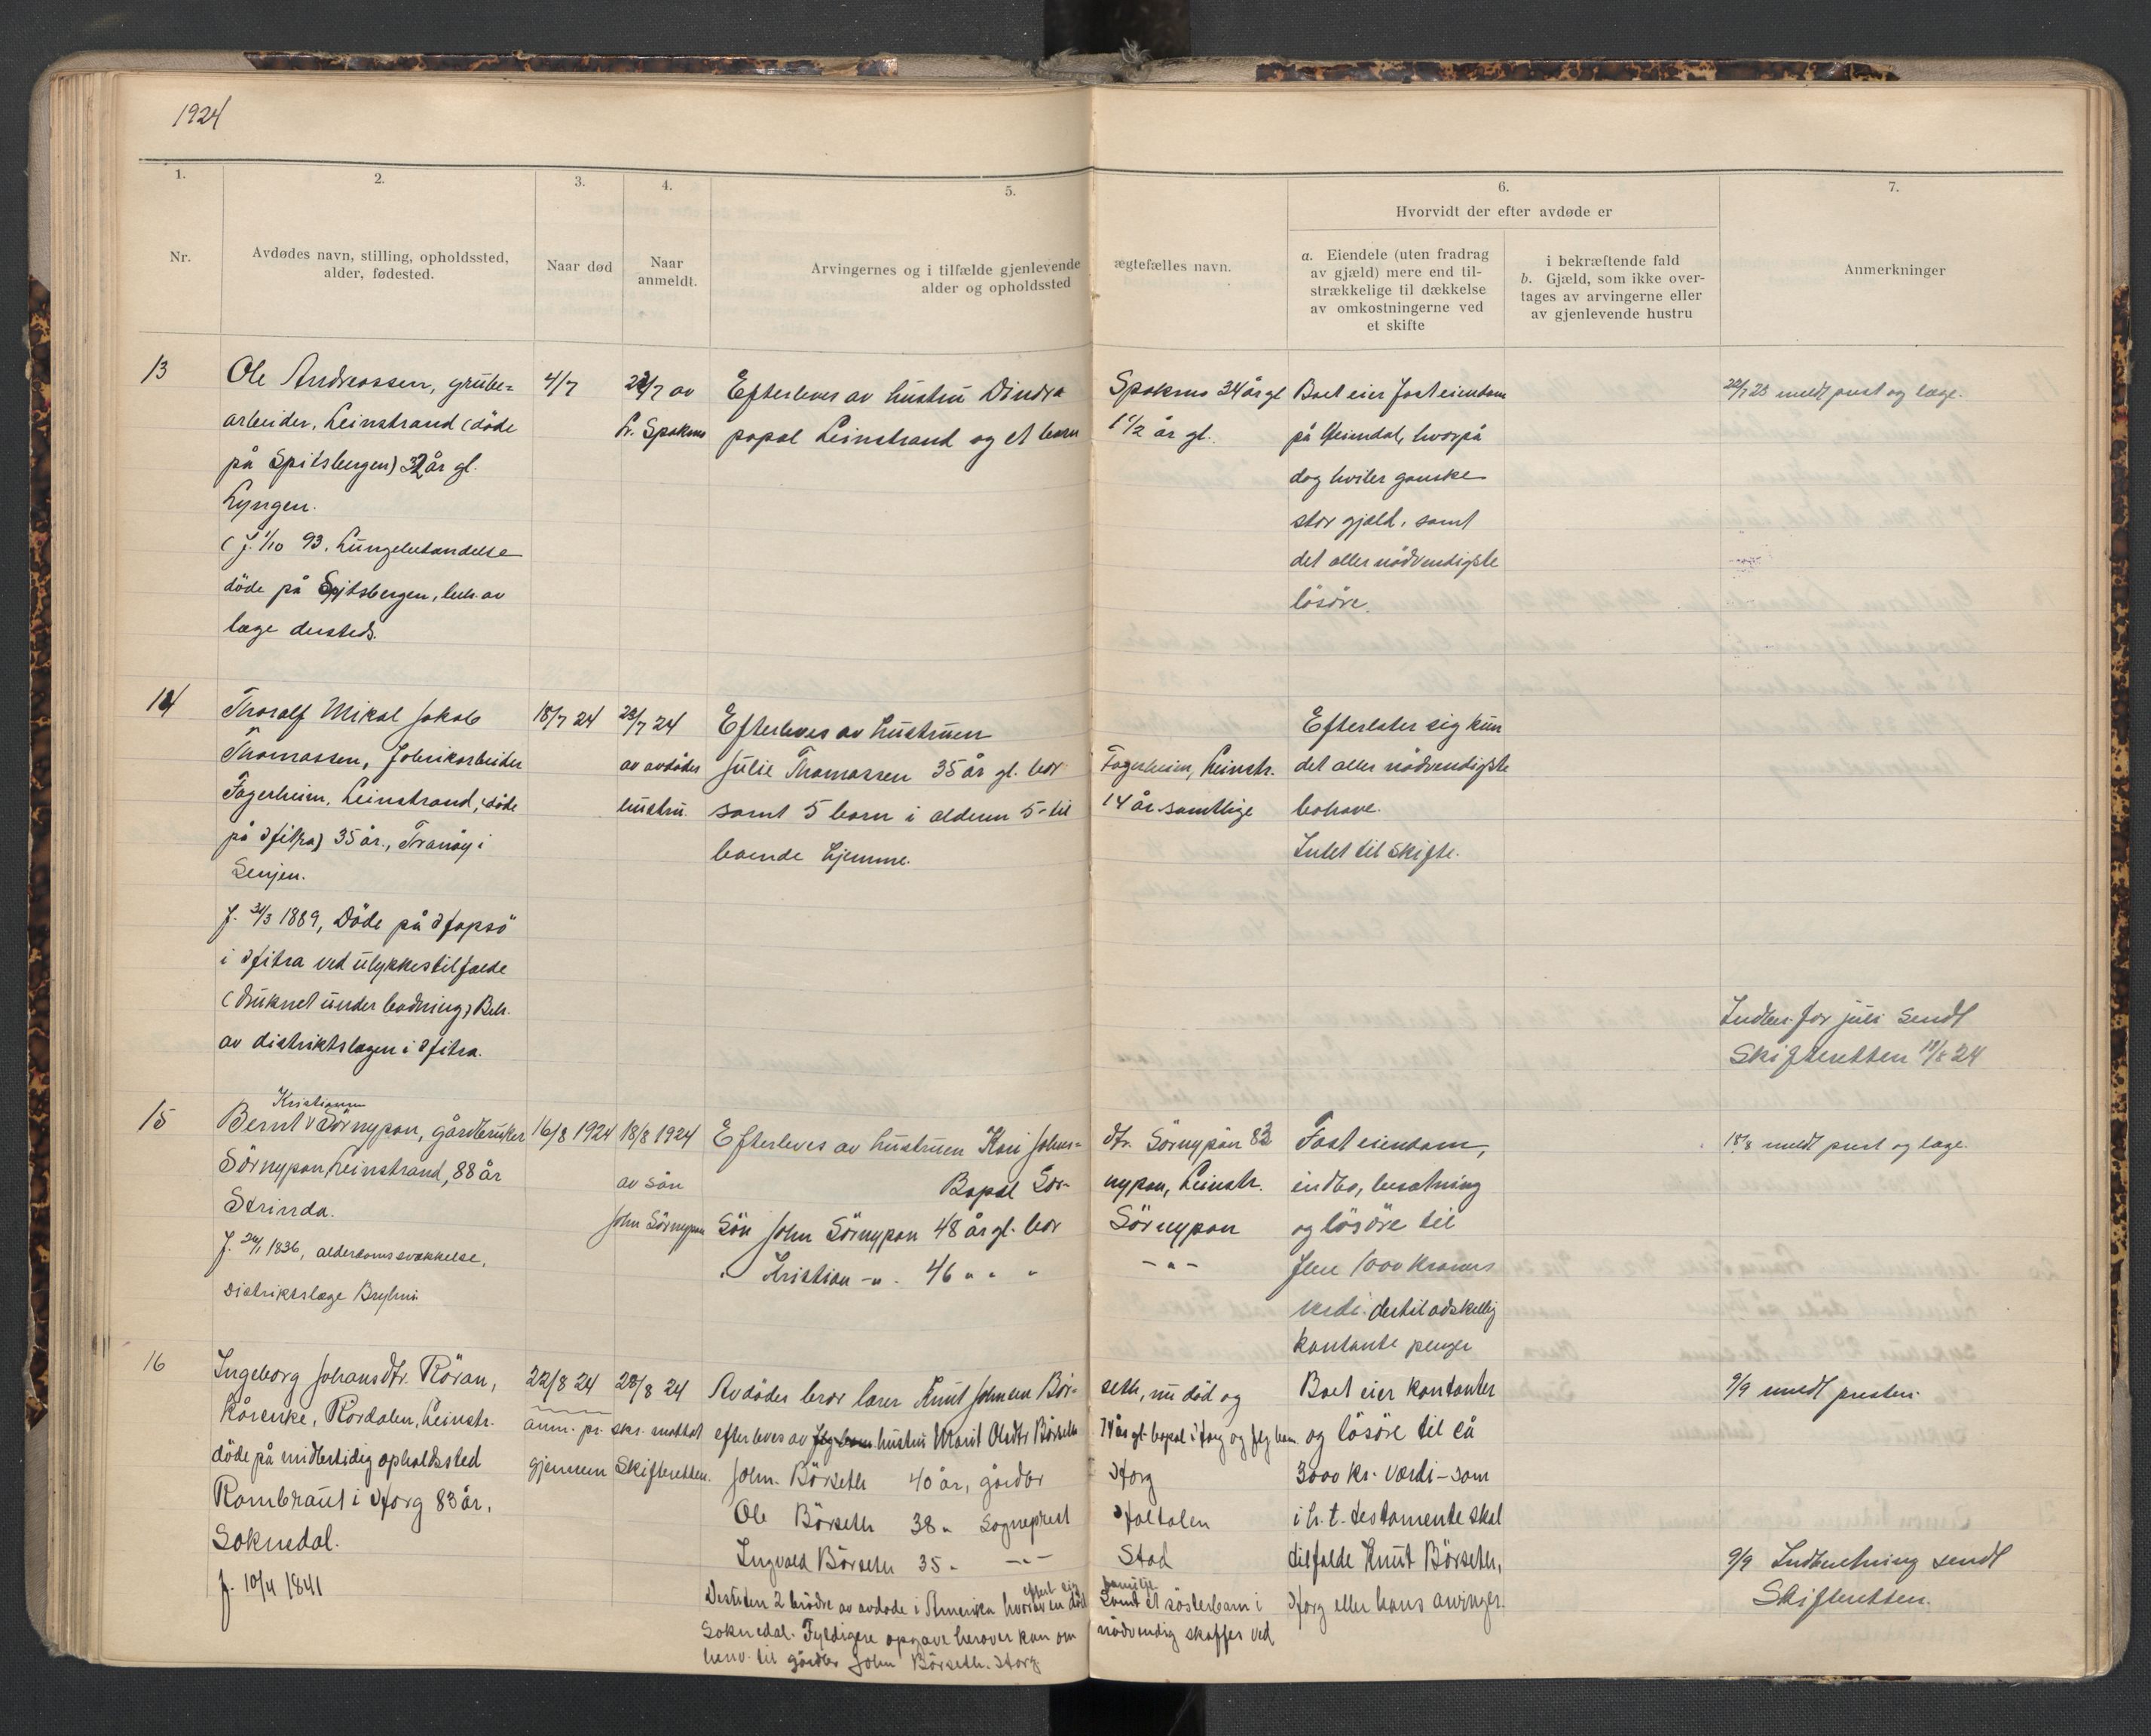 1924
1.
2.
3.
4.
5.
6.
7.
Nr.
Avdødes navn, stilling, opholdssted,
alder, fødested.
Naar død
Naar
anmeldt.
Arvingernes og i tilfælde gjenlevende ægtefælles navn.
alder og opholdssted
Hvorvidt der efter avdøde er
a. Eiendele (uten fradrag
av gjæld) mere end til-
strækkelige til dækkelse
av omkostningerne ved
et skifte
i bekræftende fald
b. Gjæld, som ikke over-
tages av arvingerne eller
av gjenlevende hustru
Anmerkninger
13
Ole Andreassen, grube=
arbeider, Leinstrand (döde
på Spitsbergen) 32 år gl.
Lyngen.
(f. 1/10 93. Lungebetændelse
döde på Spitsbergen, beh. av
læge dersteds.
4/7
22/7 av
Spokmo
Efterleves av hustru Dindra Spokmo 34 år gl
popæl Leinstrand og et barn 1 1/2 år gl.
Boet eier fast eiendom
på Heimdal, hvorpå
dog hviler ganske
stor gjæld, samt
det aller nödvendigste
lösöre.
meldt prest og læge.
14
Thoralf Mikal Jakob
Thomassen, Fabrikarbeider
Fagerheim, Leinstrand, (döde
på Hitra) 35 år., Tranöy i
Senjen.
f. 31/3 1889, Döde på Hopsö
i Hitra ved ulykkestilfælde
(druknet under badning) Beh.
av distriktslægen i Hitra.
18/7 24
23/7 24
av avdödes
hustru.
Efterleves av hustruen
Julie Thomassen 35 år gl. bor Fagerheim, Leinstr.
samt 5 barn i alderen 5 - til 14 år samtlige
boende hjemme.
Efterlater sig kun
det aller nödvendigste
bohave.
Intet til skifte.
Indber. for juli sendt
Skifteretten 18/8 24
15
Kristiansen
Bernt Sörnypan, gårdbruker
Sörnypan Leinstrand, 88 år
Strinda.
f. 1836, alderdomssvækkelse,
Distriktslæge Bryhni
16/8 1924
18/8 1924
av sön
John Sörnypan
Efterleves av hustruen Kari Johns=dtr. Sörnypan 83
Bopæl Sör-nypan, Leinstr.
Sön John Sörnypan 48 år gl. bor Sörnypan
" Kristian -"- 46 " " " - " -
Fast eiendom,
indbo, besætning
og lösöre til
flere 1000 kroners
verdi. dertil adskillig
kontante penger
18/8 meldt prest og læge.
16
Ingeborg Johansdtr. Röran,
Kårenke, Rordalen, Leinstr.
döde på midlertidig opholdssted
Rambraut i Horg 83 år,
Soknedal.
f. 10/4 1841
22/8 24
28/8 24
anm. pr. skr. mottat
gjennem Skifteretten.
Avdödes bror lærer Knut Johnsen Bör-seth, nu död og
efterleves av hustru Marit Olsdtr Börseth 74 år gl. bopæl i Horg og flg barn
John Börseth 40 år, gårdbr Horg
Ole Börseth 38 " Sogneprest Holtålen
Ingvald Börseth 35 " -"- Stod
Desuten 2 brödre av avdöde i Amerika hvorav en död efterl. sig familje Samt et sösterbarn i
Soknedal. Fyldigere opgave herover kan om nödvendig skaffes ved
henv. til gårdbr John Börseth. Horg
Boet eier kontanter
og lösöre til ca
3000 kr. værdi - som
i h. t. testamente skal
tilfalde Knut Börseth,
Horg eller hans arvinger.
9/9 meldt presten.
9/9 Indberetning sendt
Skifteretten.